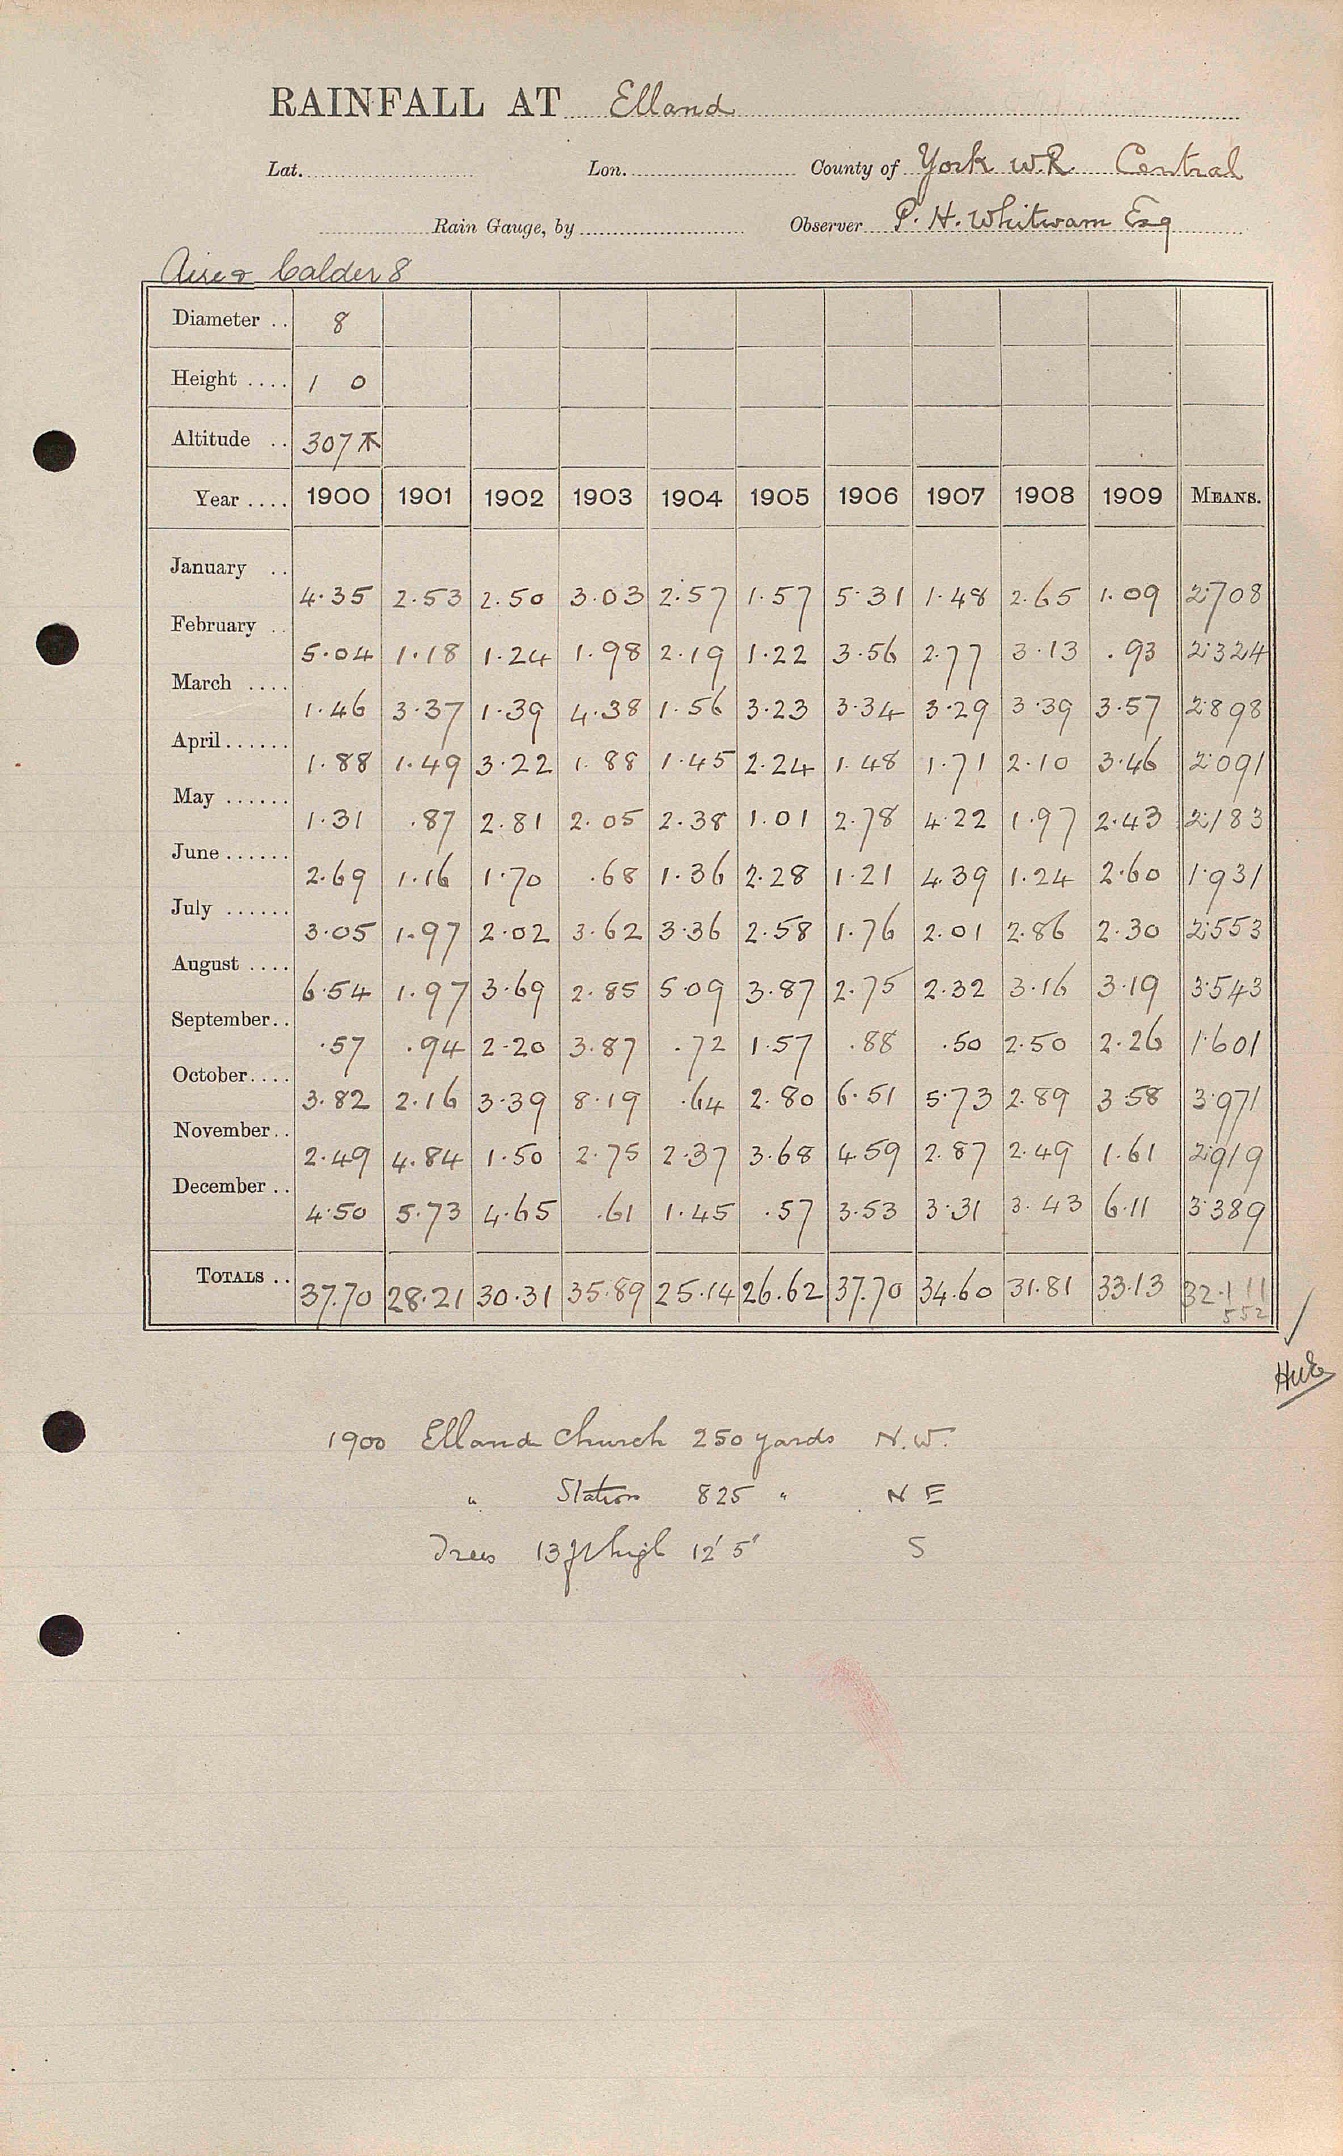 RAINFALL AT Elland
Lat. Lon. County of York W.R. Central
Rain Gauge, by Observer P. H. Whitwam Esq
Aire & Calder 8
Diameter .. 8
Height .... 1 0
Altitude .. 307
Year .... 1900 1901 1902 1903 1904 1905 1906 1907 1908 1909 MEANS.
January .. 4.35 2.53 2.50 3.03 2.57 1.57 5.31 1.48 2.65 1.09 2.708
February .. 5.04 1.18 1.24 1.98 2.19 1.22 3.56 2.77 3.13 .93 2.324
March .... 1.46 3.37 1.39 4.38 1.56 3.23 3.34 3.29 3.39 3.57 2.898
April...... 1.88 1.49 3.22 1.88 1.45 2.24 1.48 1.71 2.10 3.46 2.091
May ...... 1.31 .87 2.81 2.05 2.38 1.01 2.78 4.22 1.97 2.43 2.183
June...... 2.69 1.16 1.70 .68 1.36 2.28 1.21 4.39 1.24 2.60 1.931
July ...... 3.05 1.97 2.02 3.62 3.36 2.58 1.76 2.01 2.86 2.30 2.553
August .... 6.54 1.97 3.69 2.85 5.09 3.87 2.75 2.32 3.16 3.19 3.543
September.. .57 .94 2.20 3.87 .72 1.57 .88 .50 2.50 2.26 1.601
October.... 3.82 2.16 3.39 8.19 .64 2.80 6.51 5.73 2.89 3.58 3.971
November.. 2.49 4.84 1.50 2.75 2.37 3.68 4.59 2.87 2.49 1.61 2.919
December .. 4.50 5.73 4.65 .61 1.45 .57 3.53 3.31 3.43 6.11 3.389
TOTALS .. 37.70 28.21 30.31 35.89 25.14 26.62 37.70 34.60 31.81 33.13 32.111
552
1900 Elland Church 250 yards N.W.
" Station 825 " N E
Trees 13 ft high 12' 5' S